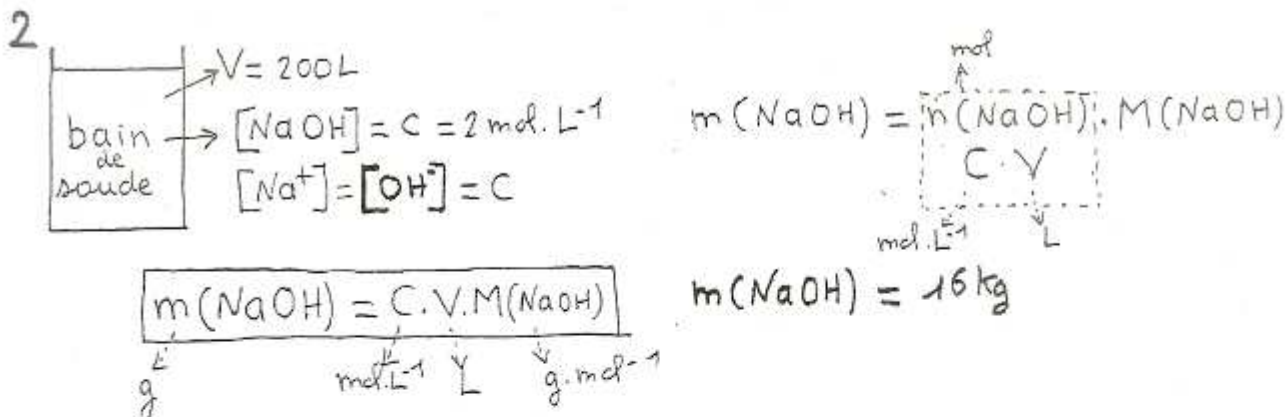 2
V = 200L
bain de soude
[NaOH] = C = 2 mol. L⁻¹
[Na⁺] = [OH⁻] = C
mol
m (NaOH) = n(NaOH). M(NaOH)
C. V
mol. L⁻¹ L
m(NaOH) = C.V.M(NaOH)
g mol. L⁻¹ L g. mol⁻¹
m(NaOH) = 16 kg